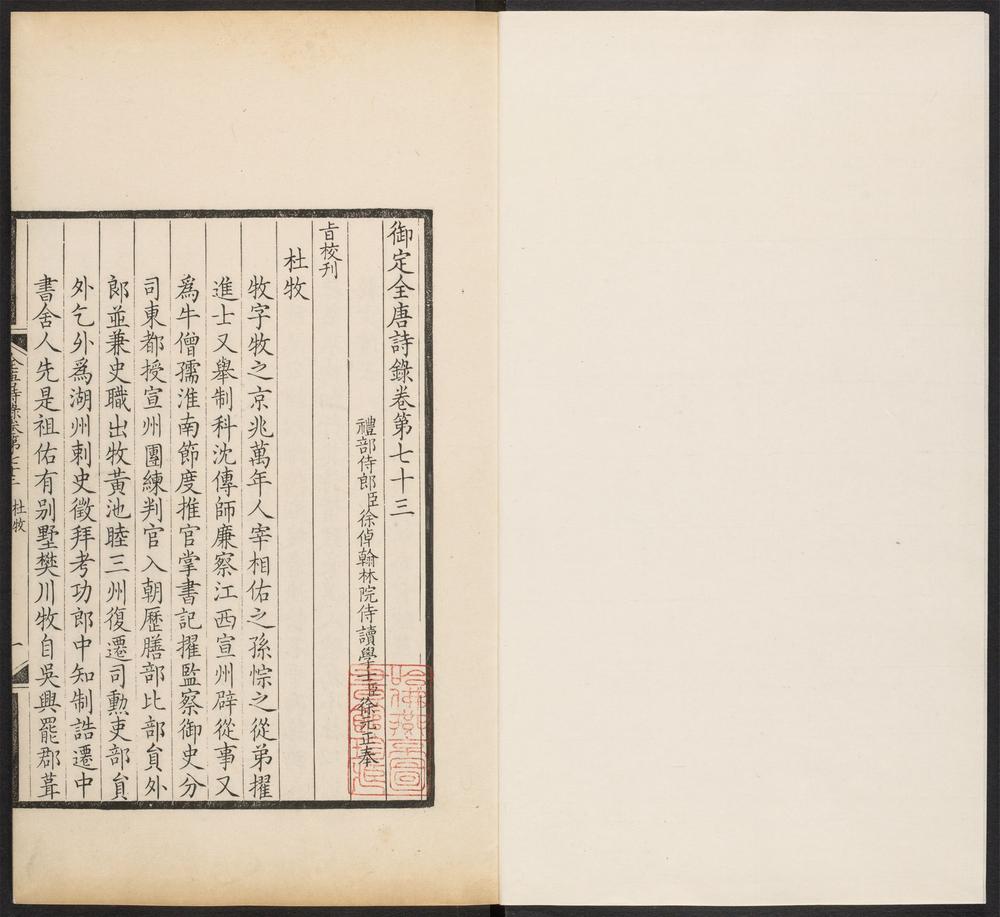 御定全唐詩錄卷第七十三
禮部侍郎臣徐倬翰林院侍讀學士臣徐元正奉
旨校刊
杜牧
牧字牧之京兆萬年人宰相佑之孫悰之從弟擢
進士又舉制科沈傳師廉察江西宣州辟從事又
爲牛僧孺淮南節度推官掌書記擢監察御史分
司東都授宣州團練判官入朝歷膳部比部貟外
郎並兼史職出牧黃池睦三州復遷司勲吏部貟
外乞外爲湖州刺史徵拜考功郎中知制誥遷中
書舍人先是祖佑有别墅樊川牧自吳興罷郡葺
全唐詩錄卷第七十三 杜牧 一